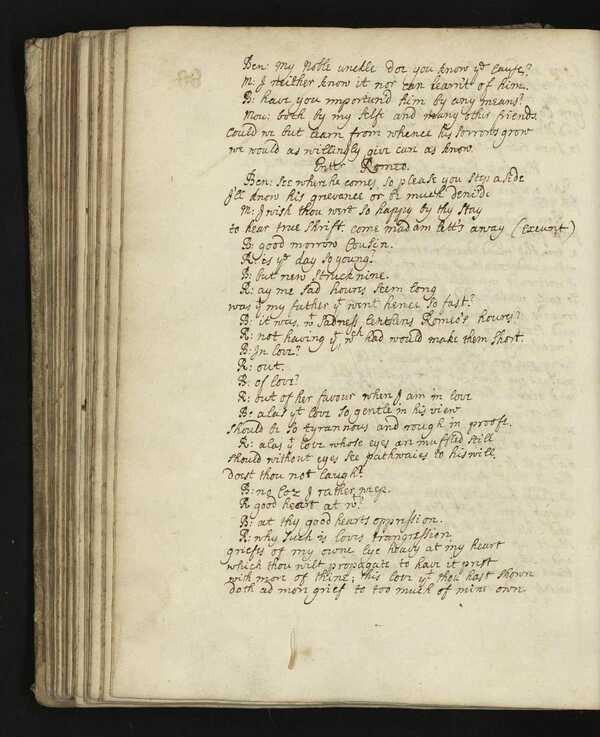 Ben: my Noble unckle doe you know yͤ cause?
M: I neither know it nor can learn't of him.
B: have you importund him by any means?
Mou: both by my self and many other friends.
Could we but learn from whence his sorrows grow
we would as willingly give cure as know.
Enter Romeo.
Ben: see where he comes, so please you step aside
I'le know his grievance or be much denid.
M: I wish thou wert so happy by thy stay
to hear true shrift. come madam lett's away (Exeunt)
B: good morrow Cousin.
R: is yͤ day so young?
B: but new struck nine.
R: ay me sad houres seem long
was yͭ my father yͭ went hence so fast?
B: it was, wͭ sadness lenthens Romeo's houres?
R: not having yͭ, wᶜʰ had would make them short.
B: In love?
R: out.
B: of love?
R: out of her favour when I am in love
B: alas yͭ love so gentle in his view
should be so tyrannous and rough in proofe.
R: alas yͭ love whose eyes are muffled still
should without eyes see pathwaies to his will.
doest thou not laugh?
B: no Coz I rather weep.
R good heart at wͭ?
B: at thy good hearts oppression.
R: why such is loves trangression.
griefes of my owne lye heavy at my heart
which thou wilt propagate to have it prest
with more of thine; this love yͭ thou hast shown
doth ad more grief to too much of mine own.